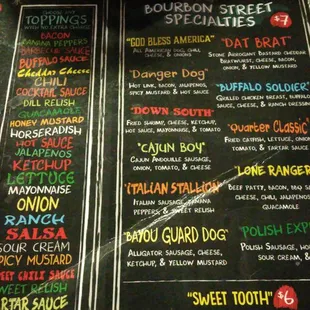 TOPPINGS
BACON
BANANA PEPPERS
BARBECUE SAUCE
BUFFALO SAUCE
Cheddar Cheese
CHILI
COCKTAIL SAUCE
DILL RELISH
GUACAMOLE
HONEY MUSTARD
HORSERADISH
HOT SAUCE
JALAPENOS
KETCHUP
LETTUCE
MAYONNAISE
ONION
RANCH
SALSA
SOUR CREAM
SPICY MUSTARD
SWEET CHILI SAUCE
SWEET RELISH
TARTAR SAUCE
BOURBON STREET
SPECIALTIES $7
"GOD BLESS AMERICA"
ALL AMERICAN DOG, CHILI,
CHEESE, & ONIONS
"Danger Dog"
HOT LINK, BACON, JALAPENOS,
SPICY MUSTARD & HOT SAUCE
"DOWN SOUTH"
FRIED SHRIMP, CHEESE, KETCHUP,
HOT SAUCE, MAYONNAISE, & TOMATO
"CAJUN BOY"
CAJUN ANDOUILLE SAUSAGE,
ONION, TOMATO, & CHEESE
"ITALIAN STALLION"
ITALIAN SAUSAGE, BANANA
PEPPERS, & SWEET RELISH
"BAYOU GUARD DOG"
ALLIGATOR SAUSAGE, CHEESE,
KETCHUP, & YELLOW MUSTARD
"DAT BRAT"
STONE ARROGANT BASTARD CHEDDAR
BRATWURST, CHEESE, BACON,
ONION, & YELLOW MUSTARD
"BUFFALO SOLDIER"
GRILLED CHICKEN BREAST, BUFFALO
SAUCE, CHEESE, & RANCH DRESSING
"Quarter Classic"
FRIED CATFISH, LETTUCE, ONION,
TOMATO, & TARTAR SAUCE
"LONE RANGER
BEEF PATTY, BACON, BBQ SA
CHEESE, CHILI, JALAPENOS
GUACAMOLE
"POLISH EXP
POLISH SAUSAGE, HO
SOUR CREAM, &
"SWEET TOOTH" $6